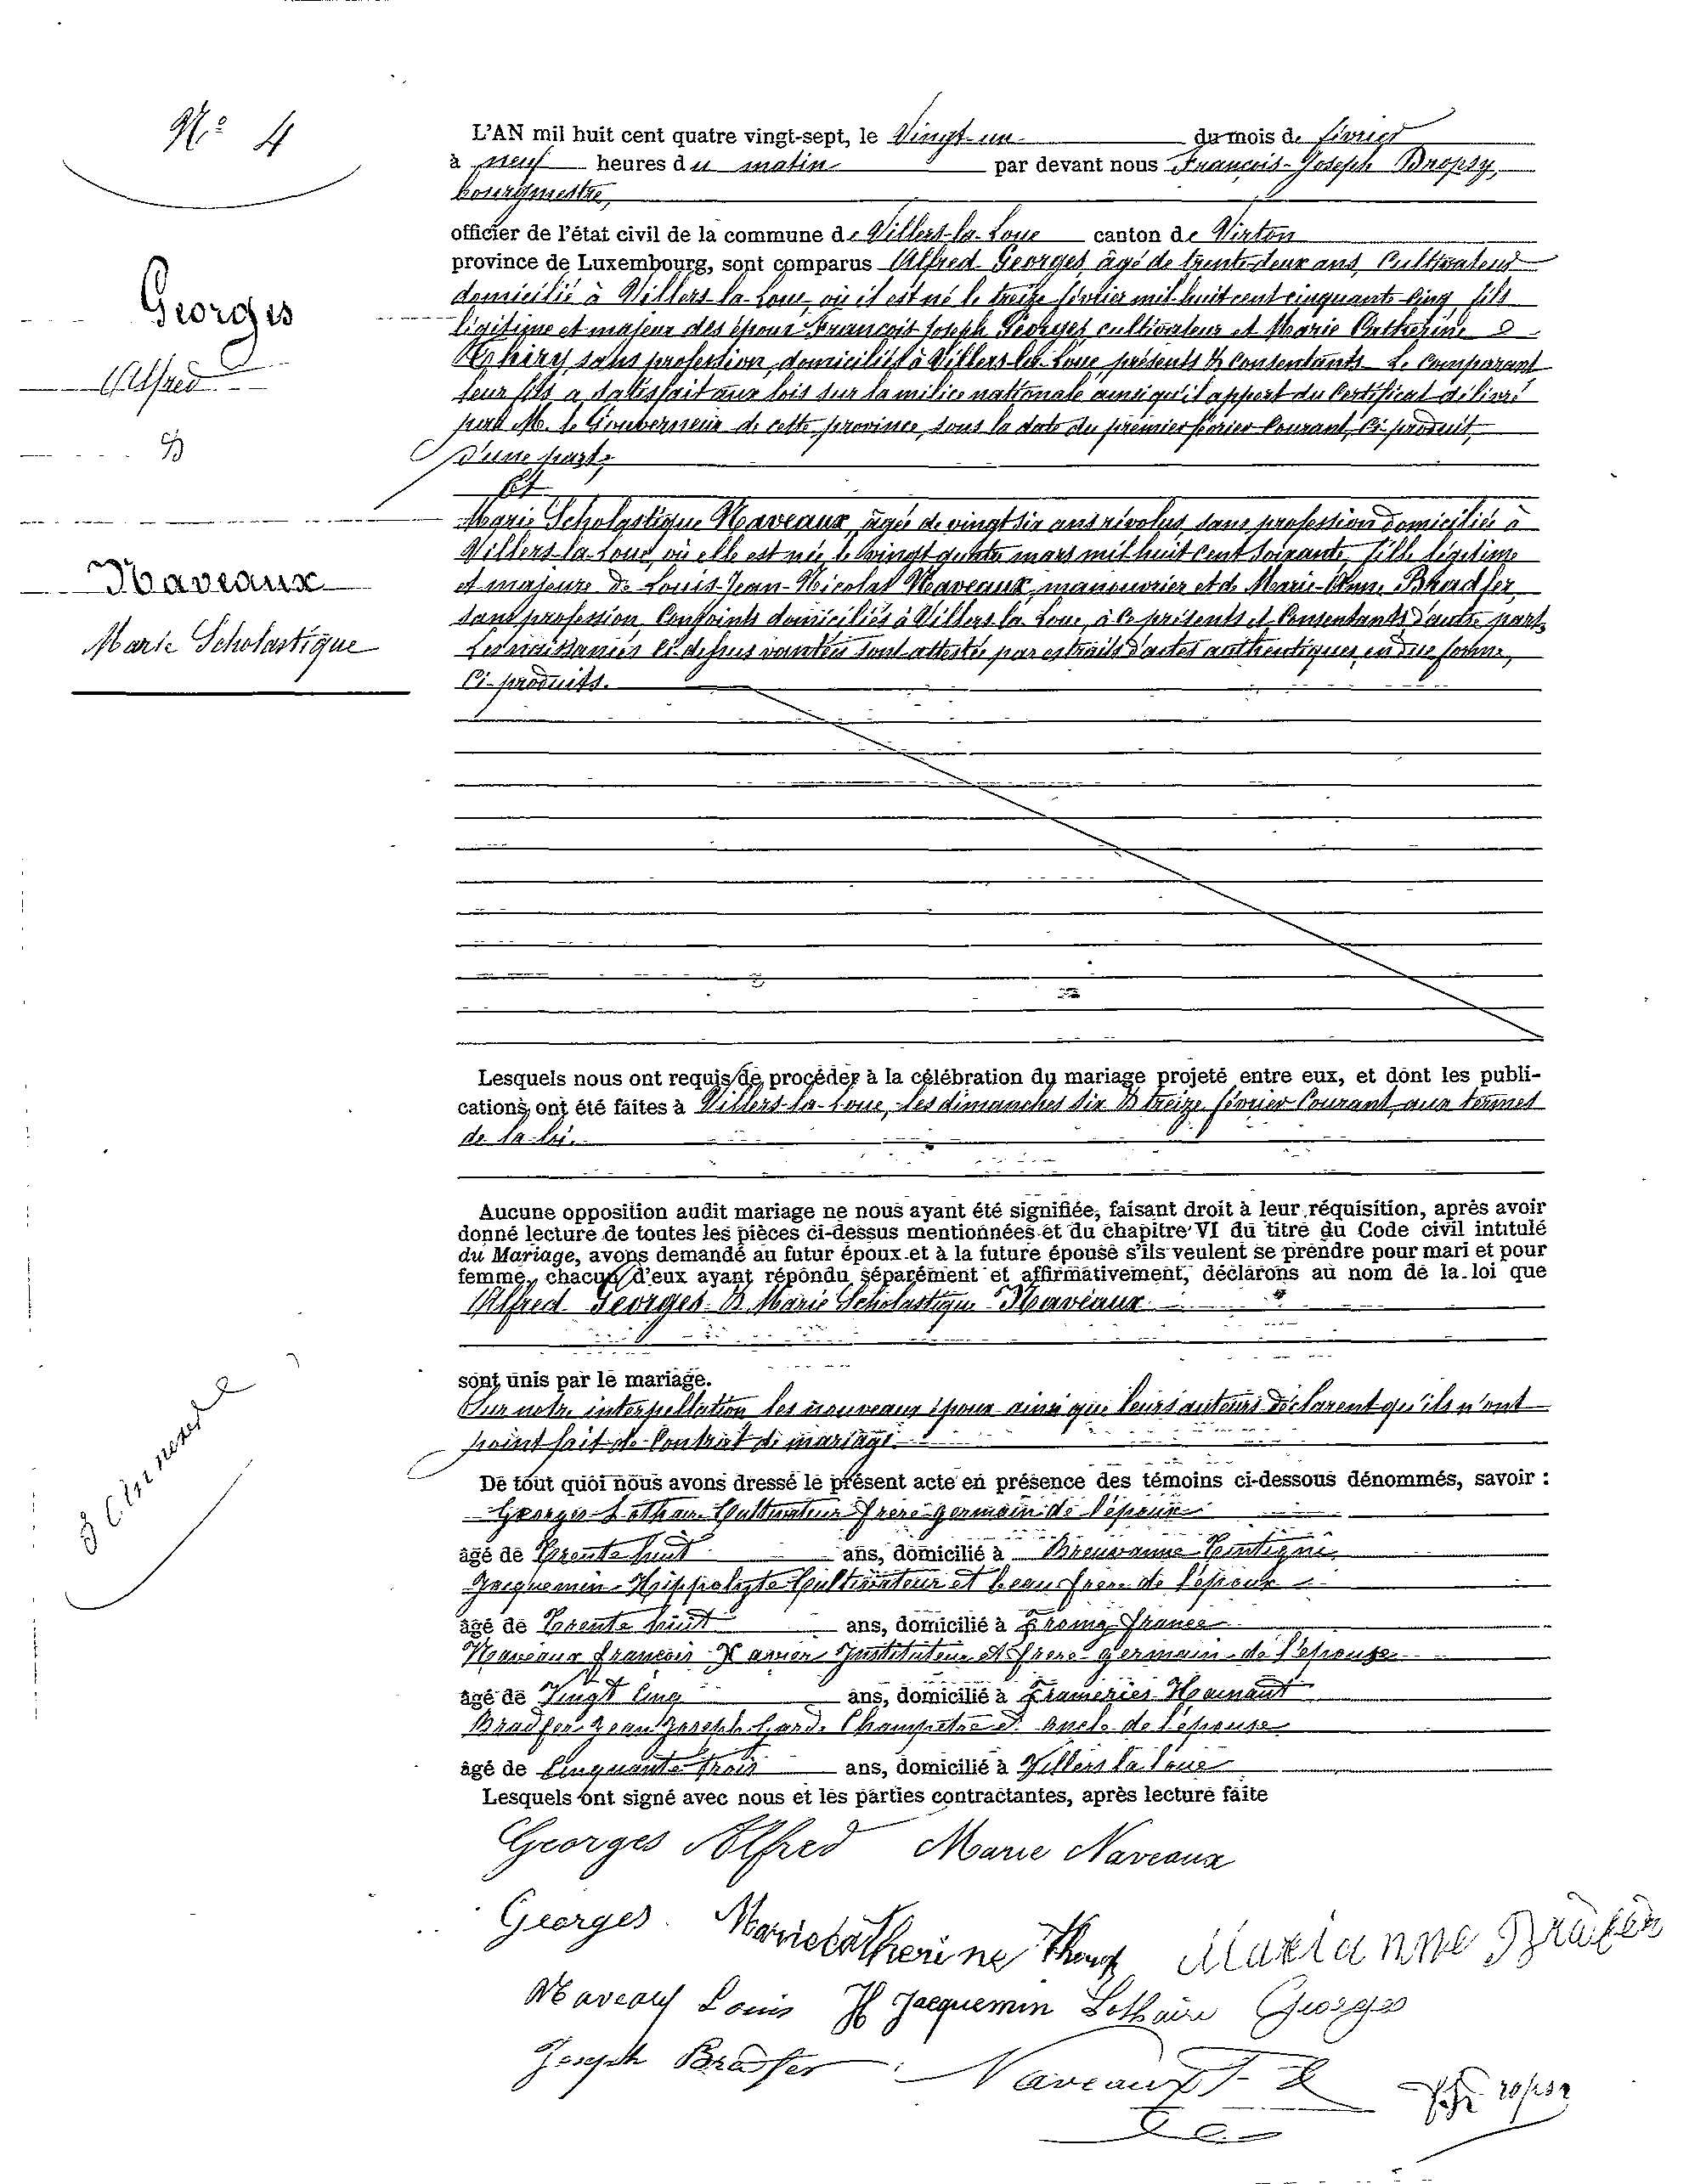 N.° 4
Georges
Alfred
&
Naveaux
Marie Scholastique
L'AN mil huit cent quatre vingt-sept, le Vingt-un du mois de février
à neuf heures du matin par devant nous François-Joseph Dropsy,
bourgmestre,
officier de l'état civil de la commune de Villers-la-Loue canton de Virton
province de Luxembourg, sont comparus Alfred Georges, âgé de trente-deux ans, Cultivateur
domicilié à Villers-la-Loue, où il est né le treize février mil huit cent cinquante-cinq, fils
légitime et majeur des époux François Joseph Georges, cultivateur et Marie Catherine
Thiry, sans profession, domiciliés à Villers-la-Loue, présents & consentants. Le comparant
leur fils a satisfait aux lois sur la milice nationale ainsi qu'il appert du Certificat délivré
par M. le Gouverneur de cette province, sous la date du premier février Courant, Ci-produit,
d'une part;
Et
Marie Scholastique Naveaux, âgée de vingt six ans révolus, sans profession domiciliée à
Villers-la-Loue, où elle est née le vingt quatre mars mil huit cent soixante, fille légitime
et majeure de Louis-Jean-Nicolas Naveaux, manouvrier et de Marie-Anne Bradfer,
sans profession, Conjoints domiciliés à Villers-la-Loue, à ce présents et Consentants d'autre part,
Les naissances ci-dessus vantées sont attestées par extraits d'actes authentiques, en due forme,
Ci-produits.
Lesquels nous ont requis de procéder à la célébration du mariage projeté entre eux, et dont les publi-
cations ont été faites à Villers-la-Loue, les dimanches six & treize février Courant, aux termes
de la loi.
Aucune opposition audit mariage ne nous ayant été signifiée, faisant droit à leur réquisition, après avoir
donné lecture de toutes les pièces ci-dessus mentionnées et du chapitre VI du titre du Code civil intitulé
du Mariage, avons demandé au futur époux et à la future épouse s'ils veulent se prendre pour mari et pour
femme, chacun d'eux ayant répondu séparément et affirmativement, déclarons au nom de la loi que
Alfred Georges & Marie Scholastique Naveaux
sont unis par le mariage.
Sur notre interpellation les nouveaux époux ainsi que leurs auteurs déclarent qu'ils n'ont
point fait de Contrat de mariage.
De tout quoi nous avons dressé le présent acte en présence des témoins ci-dessous dénommés, savoir :
Georges Lothaire Cultivateur frère germain de l'époux
âgé de Trente huit ans, domicilié à Breuvanne Tintigni
Jacquemin Hippolyte Cultivateur et beau frère de l'époux
âgé de Trente huit ans, domicilié à Fromy france
Naveaux françois Xavier Instituteur et frère germain de l'épouse
âgé de Vingt Cinq ans, domicilié à Frameries Hainaut
Bradfer Jean Joseph Garde Champetre et oncle de l'épouse
âgé de Cinquante trois ans, domicilié à Villers la loue
Lesquels ont signé avec nous et les parties contractantes, après lecture faite
Georges Alfred Marie Naveaux
Georges. Marie catherine Marianne
Naveaux Louis H Jacquemin Lothaire Georges
Joseph Bradfer Naveaux